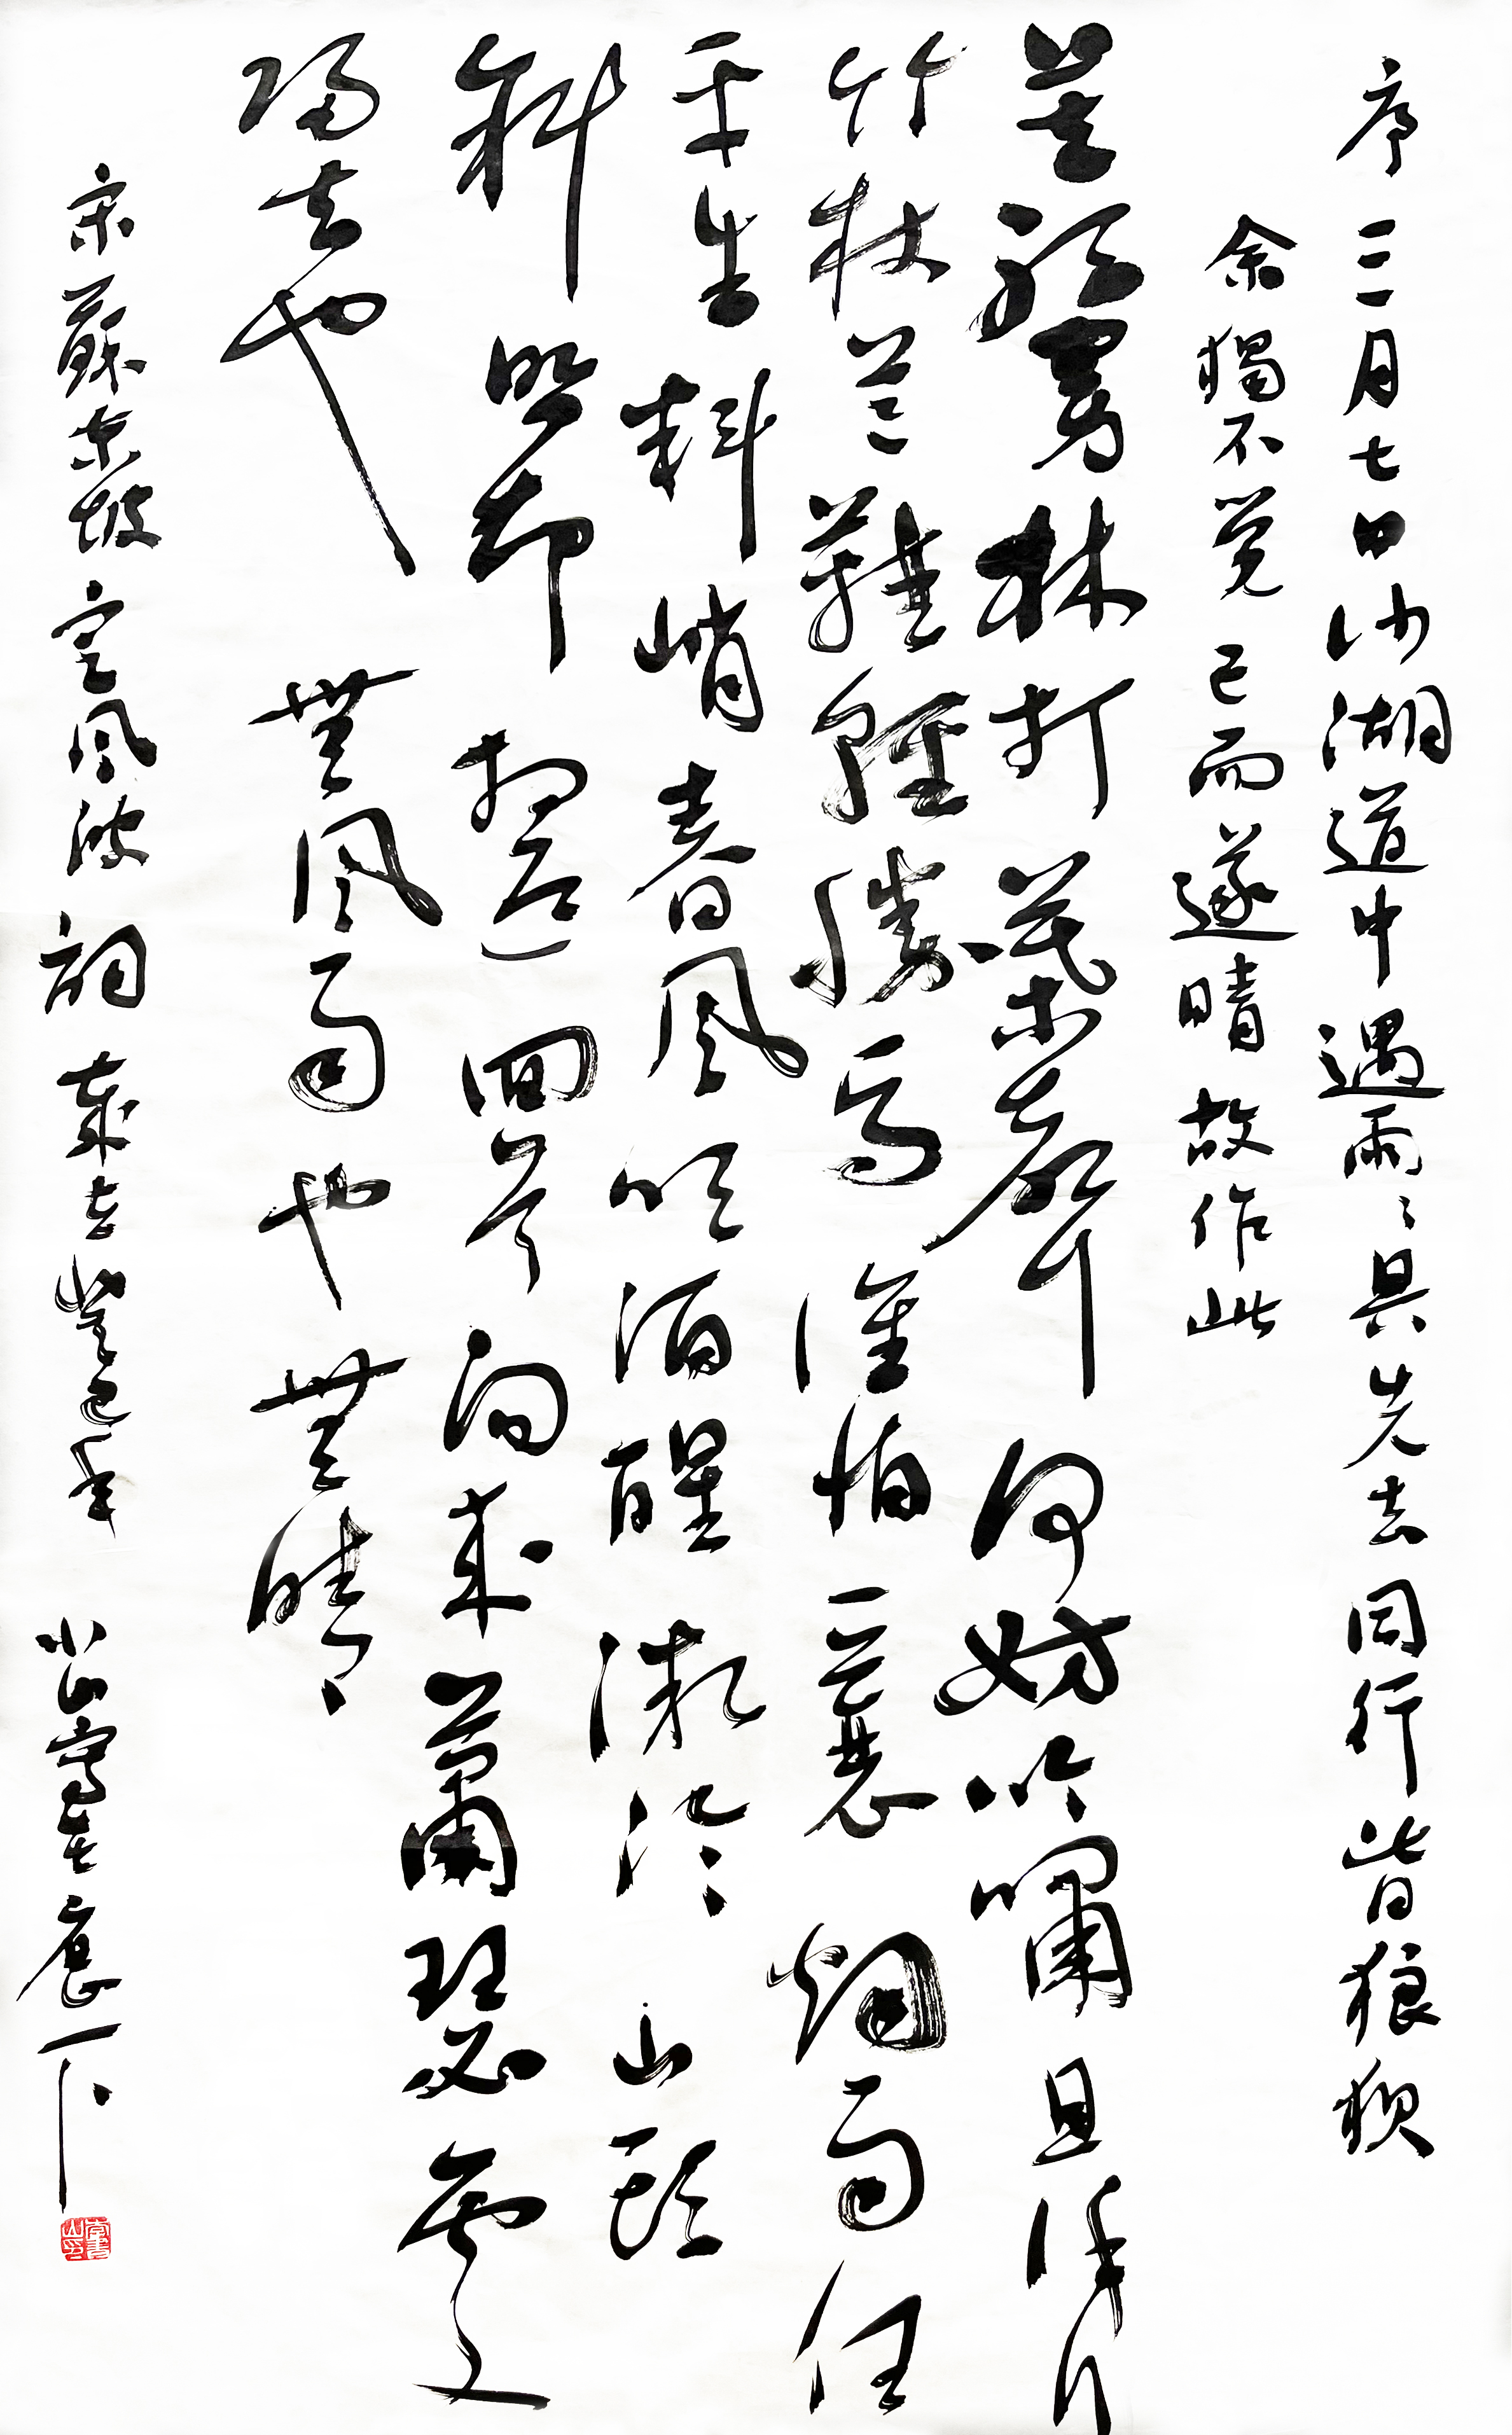 序 三月七日沙湖道中遇雨雨具先去同行皆狼狽
余獨不覺 已而遂晴 故作此
莫聽穿林打葉聲 何妨吟嘯且徐行
竹杖芒鞋輕勝馬 誰怕 一蓑烟雨任
平生 料峭春風吹酒醒 微冷 山頭
斜照却相迎 回首向來蕭瑟處
歸去也 無風雨也無晴
宋蘇東坡定風波詞 歲在癸巳年 小山寫